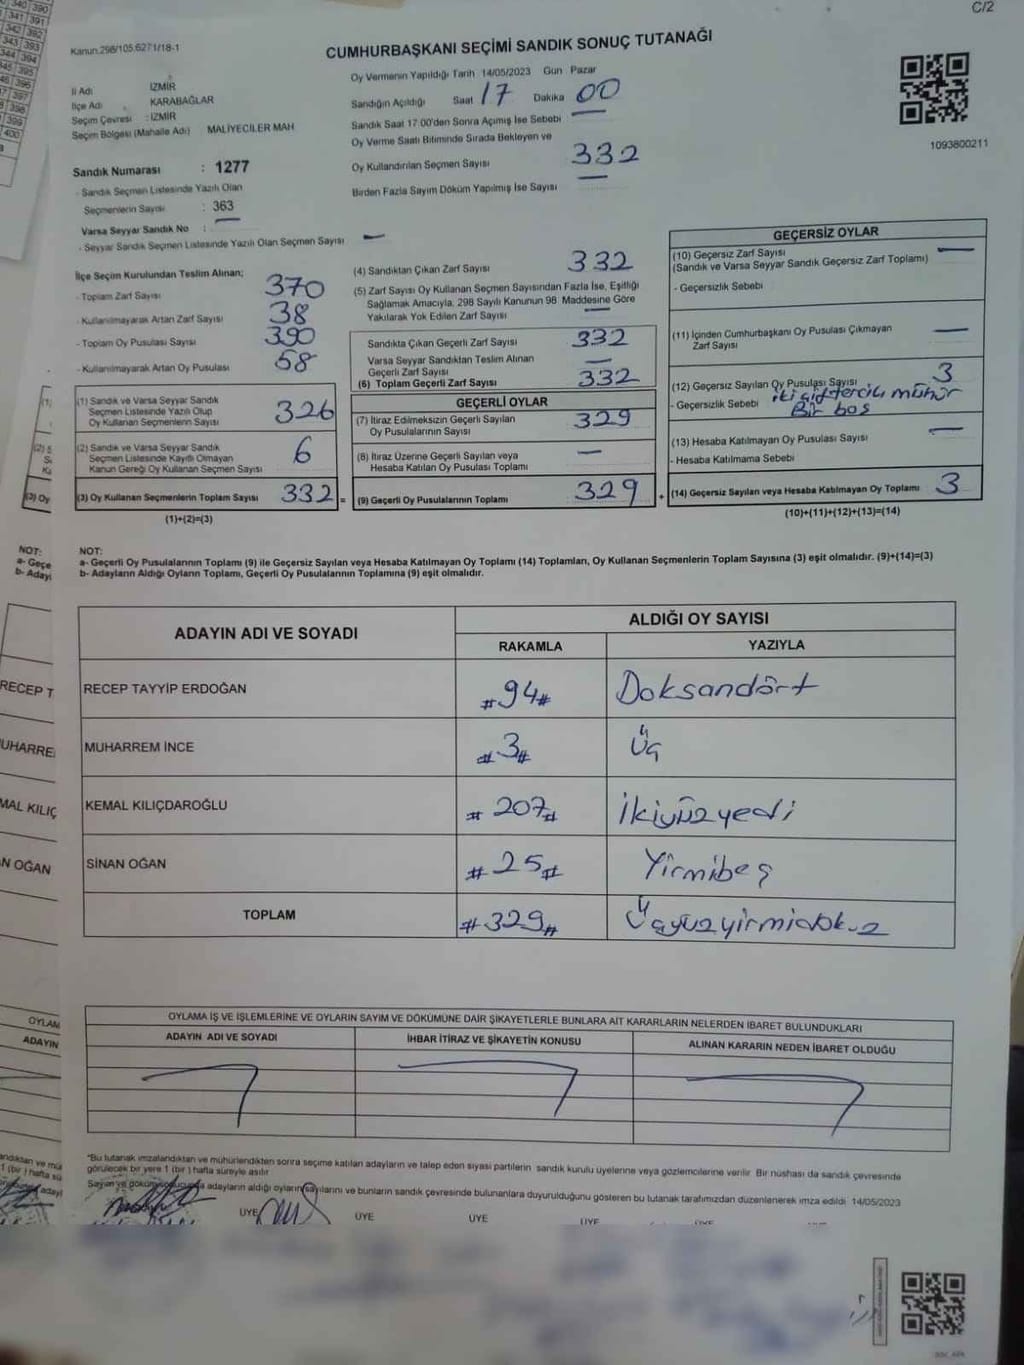 C/2
Kanun:298/105,6271/18-1
CUMHURBAŞKANI SEÇİMİ SANDIK SONUÇ TUTANAĞI
İl Adı : İZMİR
İlçe Adı : KARABAĞLAR
Seçim Çevresi : İZMİR
Seçim Bölgesi (Mahalle Adı) MALİYECİLER MAH
Sandık Numarası : 1277
- Sandık Seçmen Listesinde Yazılı Olan
Seçmenlerin Sayısı : 363
Varsa Seyyar Sandık No :
- Seyyar Sandık Seçmen Listesinde Yazılı Olan Seçmen Sayısı
Oy Vermenin Yapıldığı Tarih 14/05/2023 Gün Pazar
Sandığın Açıldığı Saat 17 Dakika 00
Sandık Saat 17:00'den Sonra Açımış İse Sebebi
Oy Verme Saati Bitiminde Sırada Bekleyen ve
Oy Kullandırılan Seçmen Sayısı 332
Birden Fazla Sayım Döküm Yapılmış İse Sayısı
1093800211
İlçe Seçim Kurulundan Teslim Alınan;
- Toplam Zarf Sayısı 370
- Kullanılmayarak Artan Zarf Sayısı 38
- Toplam Oy Pusulası Sayısı 390
- Kullanılmayarak Artan Oy Pusulası 58
(1) Sandık ve Varsa Seyyar Sandık
Seçmen Listesinde Yazılı Olup
Oy Kullanan Seçmenlerin Sayısı 326
(2) Sandık ve Varsa Seyyar Sandık
Seçmen Listesinde Kayıtlı Olmayan
Kanun Gereği Oy Kullanan Seçmen Sayısı 6
(3) Oy Kullanan Seçmenlerin Toplam Sayısı 332 =
(1)+(2)=(3)
(4) Sandıktan Çıkan Zarf Sayısı 332
(5) Zarf Sayısı Oy Kullanan Seçmen Sayısından Fazla İse, Eşitliği
Sağlamak Amacıyla, 298 Sayılı Kanunun 98 Maddesine Göre
Yakılarak Yok Edilen Zarf Sayısı
Sandıkta Çıkan Geçerli Zarf Sayısı 332
Varsa Seyyar Sandıktan Teslim Alınan
Geçerli Zarf Sayısı
(6) Toplam Geçerli Zarf Sayısı 332
GEÇERLİ OYLAR
(7) İtiraz Edilmeksizin Geçerli Sayılan
Oy Pusulalarının Sayısı 329
(8) İtiraz Üzerine Geçerli Sayılan veya
Hesaba Katılan Oy Pusulası Toplamı
(9) Geçerli Oy Pusulalarının Toplamı 329 +
GEÇERSİZ OYLAR
(10) Geçersiz Zarf Sayısı
(Sandık ve Varsa Seyyar Sandık Geçersiz Zarf Toplamı)
- Geçersizlik Sebebi
(11) İçinden Cumhurbaşkanı Oy Pusulası Çıkmayan
Zarf Sayısı
(12) Geçersiz Sayılan Oy Pusulası Sayısı 3
- Geçersizlik Sebebi iki çift tercihli mühür
Bir boş
(13) Hesaba Katılmayan Oy Pusulası Sayısı
- Hesaba Katılmama Sebebi
(14) Geçersiz Sayılan veya Hesaba Katılmayan Oy Toplamı 3
(10)+(11)+(12)+(13)=(14)
NOT:
a- Geçerli Oy Pusulalarının Toplamı (9) ile Geçersiz Sayılan veya Hesaba Katılmayan Oy Toplamı (14) Toplamları, Oy Kullanan Seçmenlerin Toplam Sayısına (3) eşit olmalıdır. (9)+(14)=(3)
b- Adayların Aldığı Oyların Toplamı, Geçerli Oy Pusulalarının Toplamına (9) eşit olmalıdır.
ADAYIN ADI VE SOYADI
ALDIĞI OY SAYISI
RAKAMLA YAZIYLA
RECEP TAYYİP ERDOĞAN #94# Doksandört
MUHARREM İNCE #3# Üç
KEMAL KILIÇDAROĞLU #207# İkiyüzyedi
SİNAN OĞAN #25# Yirmibeş
TOPLAM #329# Üçyüzyirmidokuz
OYLAMA İŞ VE İŞLEMLERİNE VE OYLARIN SAYIM VE DÖKÜMÜNE DAİR ŞİKAYETLERLE BUNLARA AİT KARARLARIN NELERDEN İBARET BULUNDUKLARI
ADAYIN ADI VE SOYADI İHBAR İTİRAZ VE ŞİKAYETİN KONUSU ALINAN KARARIN NEDEN İBARET OLDUĞU
*Bu tutanak imzalandıktan ve mühürlendikten sonra seçime katılan adayların ve talep eden siyasi partilerin sandık kurulu üyelerine veya gözlemcilerine verilir. Bir nüshası da sandık çevresinde
görülecek bir yere 1 (bir) hafta süreyle asılır
adayların aldığı oyların sayılarını ve bunların sandık çevresinde bulunanlara duyurulduğunu gösteren bu tutanak tarafımızdan düzenlenerek imza edildi 14/05/2023
ÜYE ÜYE ÜYE ÜYE